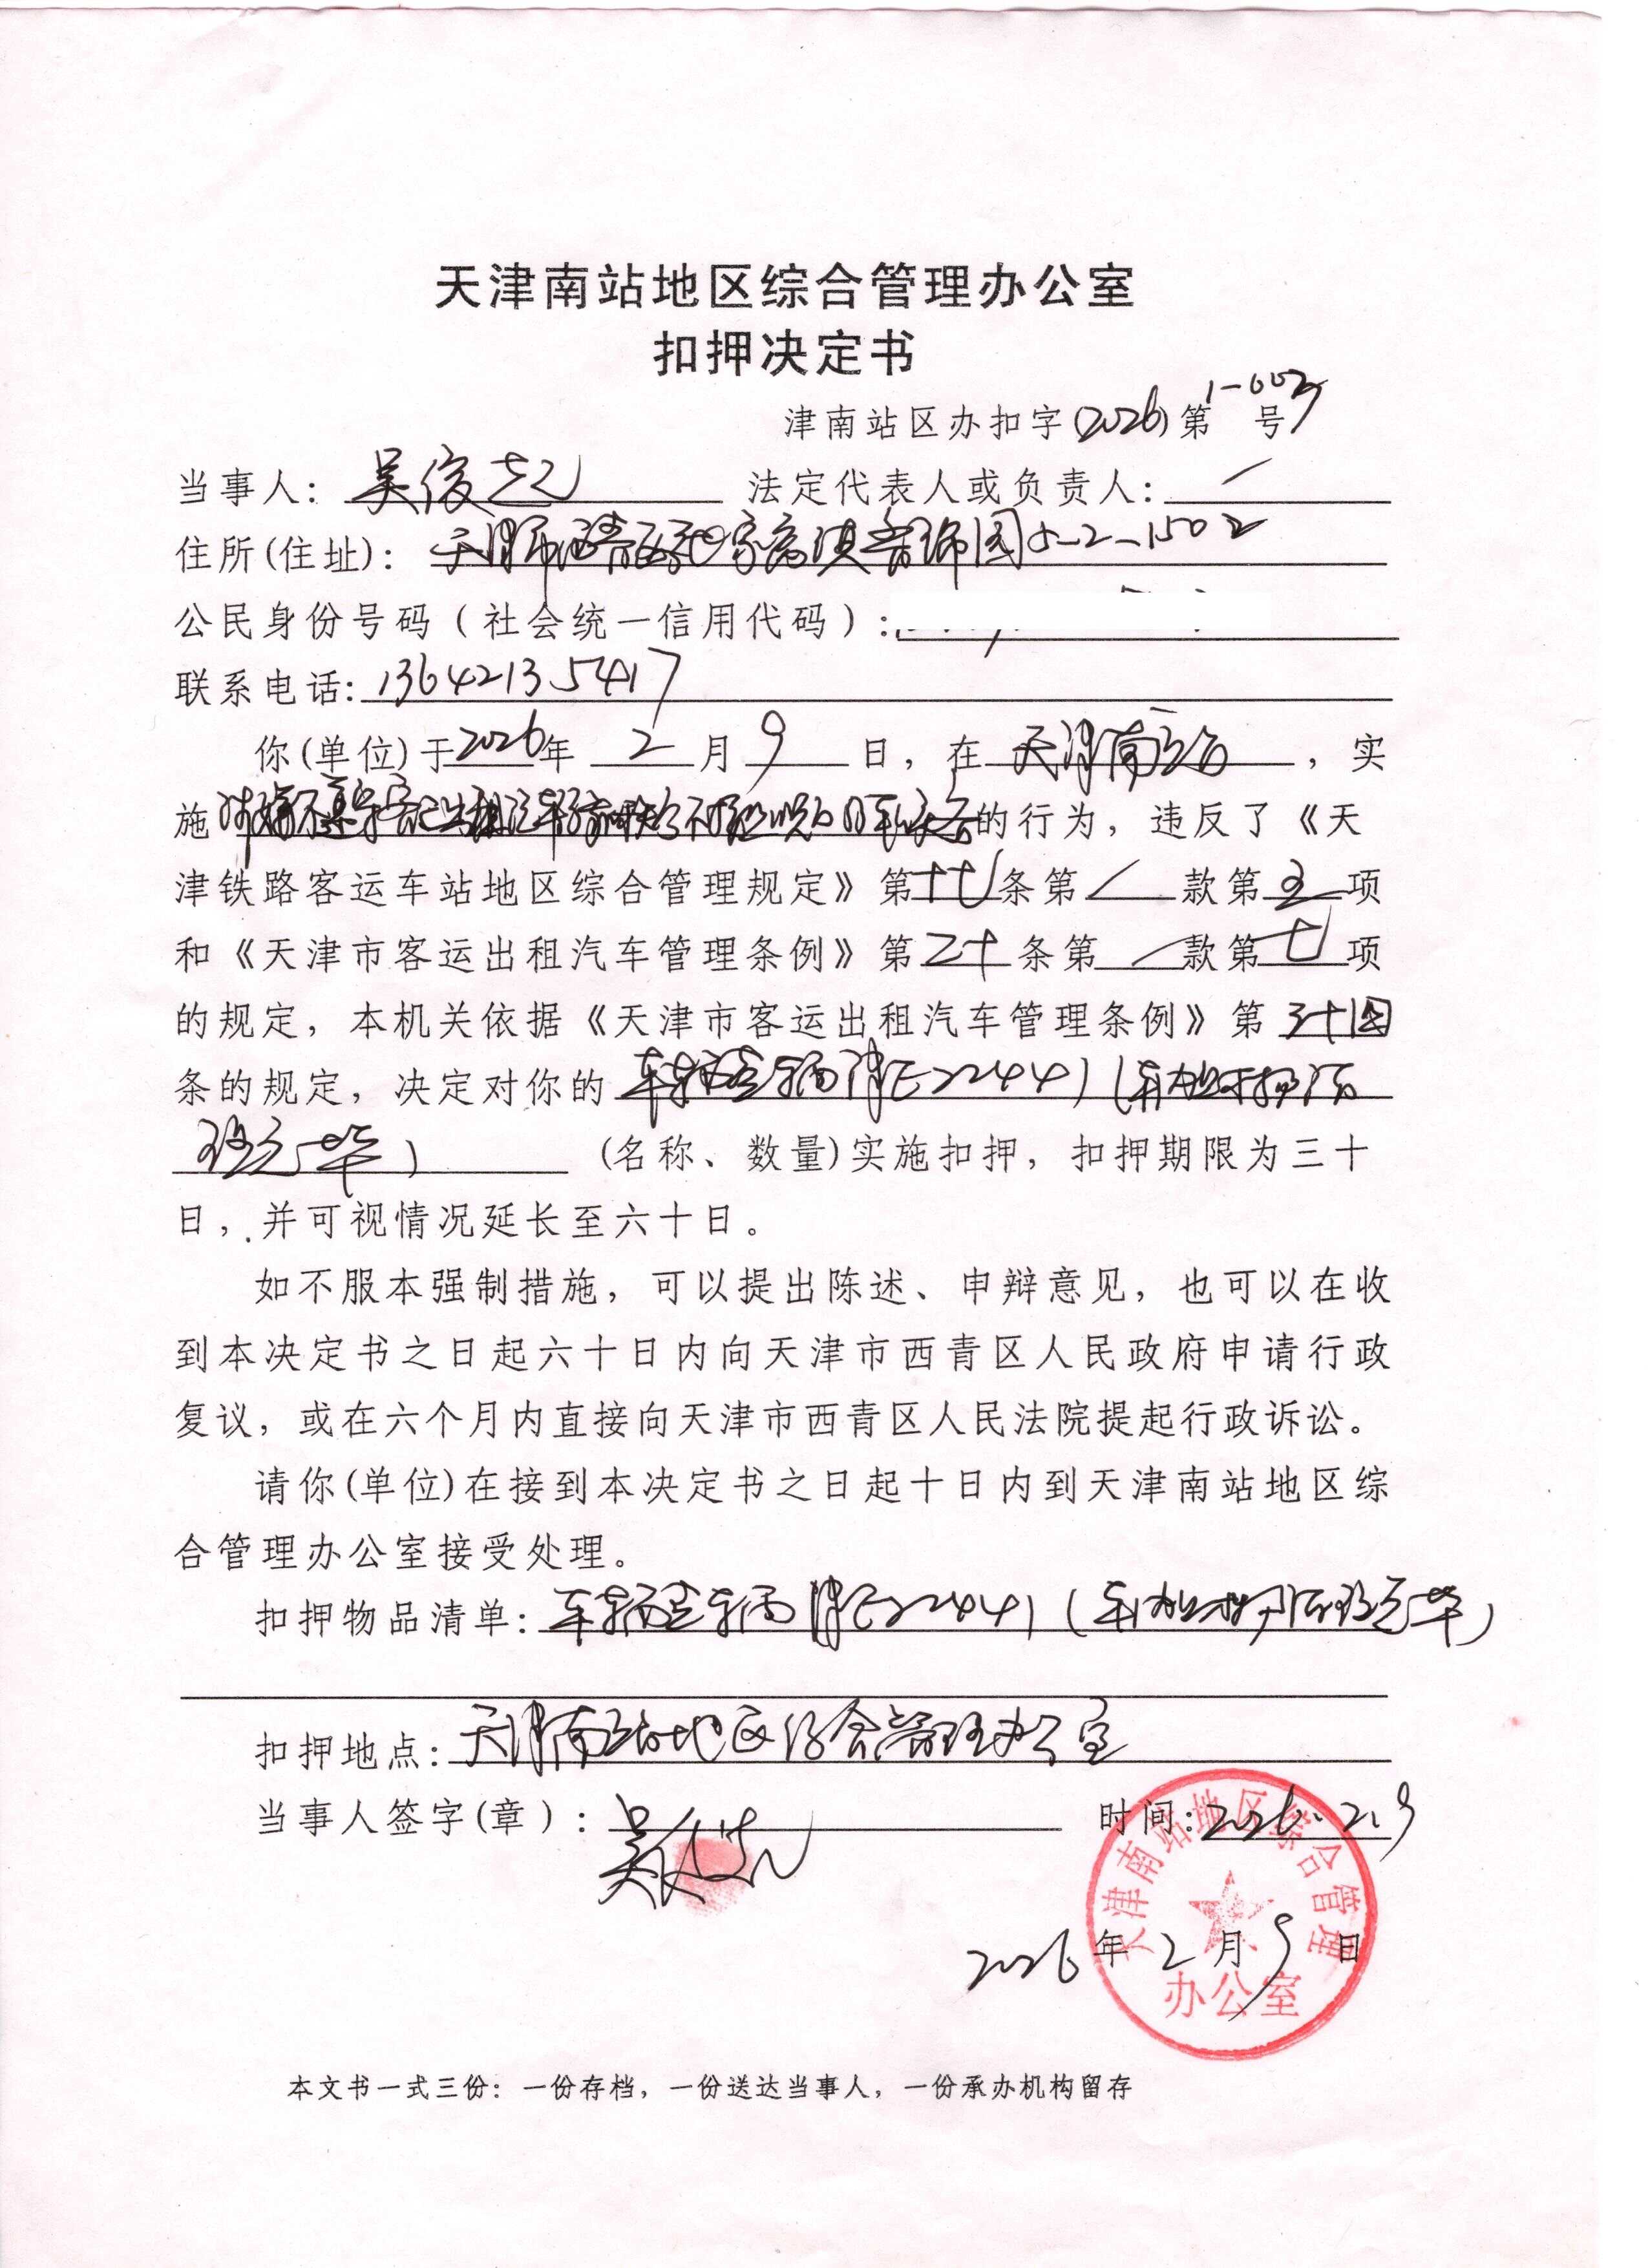 天津南站地区综合管理办公室
扣押决定书
津南站区办扣字(2026)第1-002号
当事人：吴俊 法定代表人或负责人：/
住所(住址)：天津市西青区 5-2-1502
公民身份号码（社会统一信用代码）：
联系电话：13642135417
你(单位)于2026年2月9日，在天津南站，实
施 的行为，违反了《天
津铁路客运车站地区综合管理规定》第十七条第/款第五项
和《天津市客运出租汽车管理条例》第二十条第/款第七项
的规定，本机关依据《天津市客运出租汽车管理条例》第三十四
条的规定，决定对你的车辆壹辆津E22441(
)(名称、数量)实施扣押，扣押期限为三十
日，并可视情况延长至六十日。
如不服本强制措施，可以提出陈述、申辩意见，也可以在收
到本决定书之日起六十日内向天津市西青区人民政府申请行政
复议，或在六个月内直接向天津市西青区人民法院提起行政诉讼。
请你(单位)在接到本决定书之日起十日内到天津南站地区综
合管理办公室接受处理。
扣押物品清单：车辆壹辆津E22441( )
扣押地点：天津南站地区综合管理办公室
当事人签字(章)：吴俊 时间：2026.2.9
天津南站地区综合管理
2026年2月9日
办公室
本文书一式三份：一份存档，一份送达当事人，一份承办机构留存